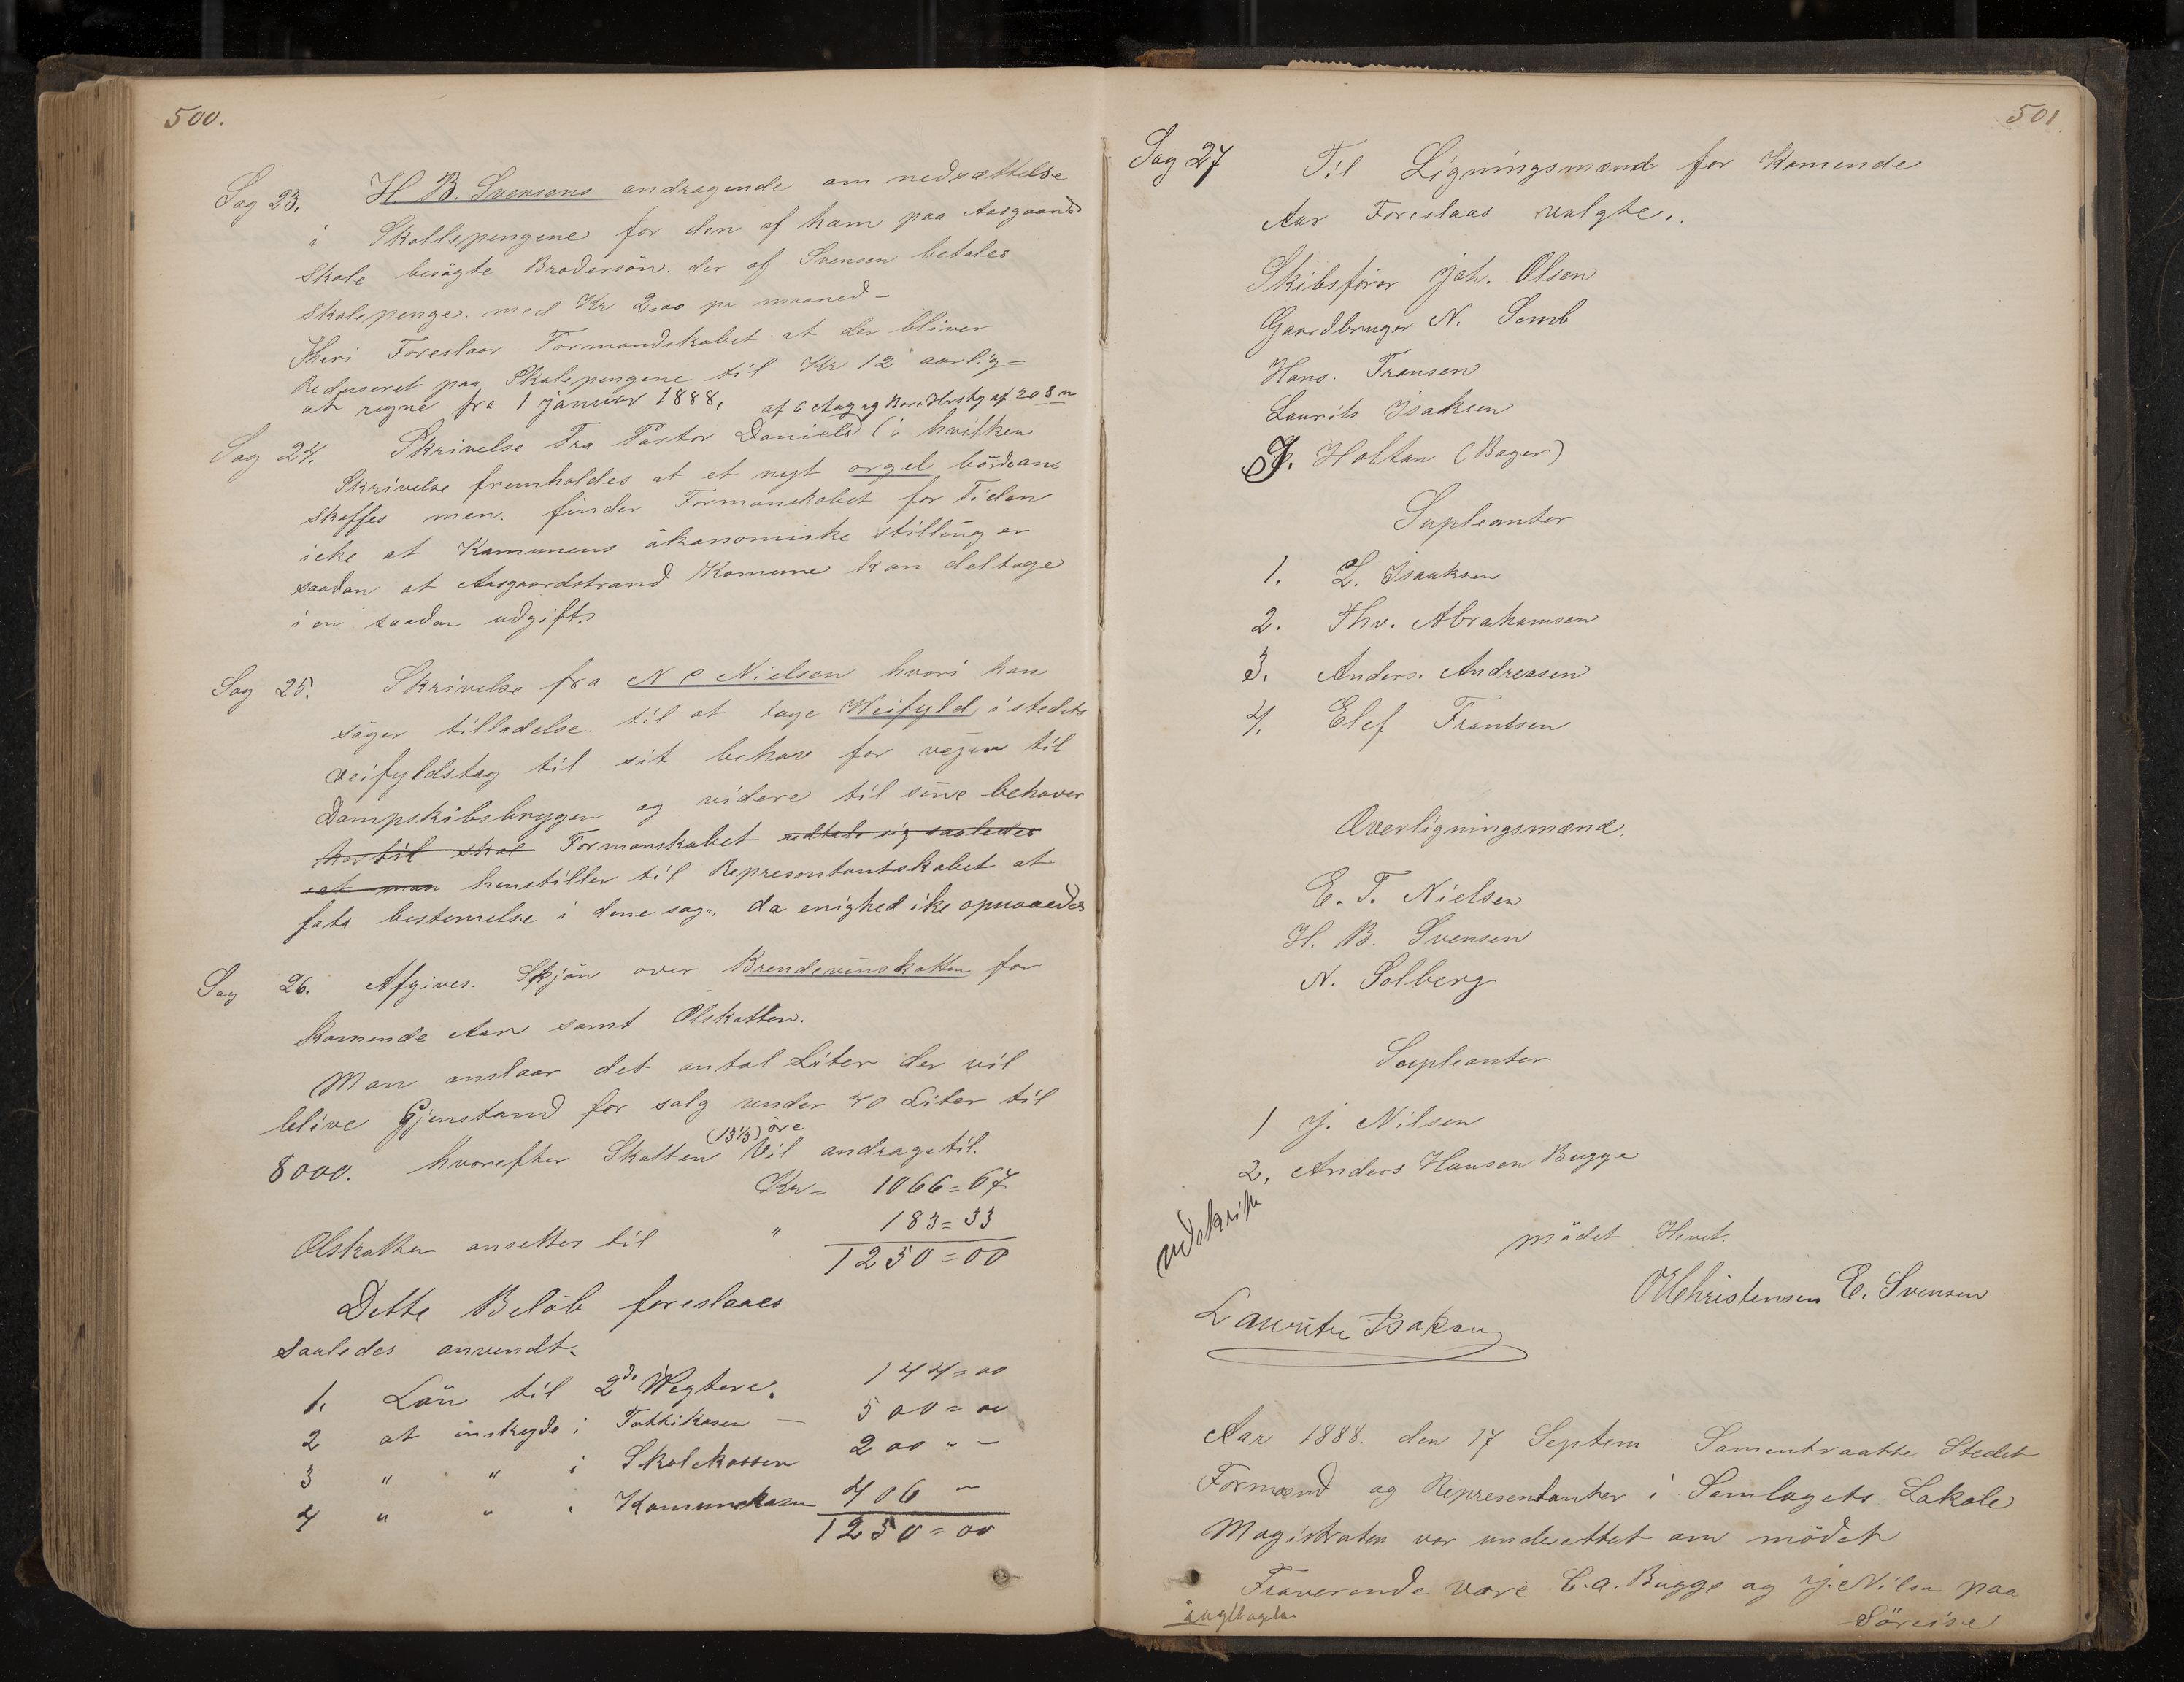 500.
Sag 23. H. B. Svensens andragende om nedsættelse
i Skollepengene for den af ham paa Aasgaards
Skole besögte Brodersön. der af Svensen betales
Skolepenge. med Kr 2.00 pr maaned –
Heri Foreslaar Formandskabet at der bliver
Reduseret paa Skolepengene til Kr 12 aarlig =
at regne fra 1 januar 1888,
Sag 24. Skrivelse Fra Pastor Daniels (i hvilken
Skrivelse fremholdes at et nyt orgel börde an
skaffes men. finder Formanskabet for Tiden
icke at Kamunens ökonomiske stilling er
saadan at Aasgaardstrand Komune kan deltage
i en saadan udgift.
Sag 25. Skrivelse fra N C Nielsen hvori han
söger tilladelse til at tage Weifyld i stedets
veifyldstag til sit behov for vejen til
Dampskibsbryggen og videre til sine behover
hertil skal Formanskabet udtale sig saaledes
at man henstiller til Representantskabet at
fata bestemelse i dene sag. da enighed ike opnaaedes
Sag 26. Afgives. Skjön over Brendevinskatten for
komende Aar samt Ölskatten.
Man anslaar det antal Liter der vil
blive Gjenstand for salg under 40 Liter til
(13⅓) öre
8000. hvorefter Skatten Vil andrage til.
Kr = 1066=67
Ölskatten ansettes til " 183=33
1250=00
Dette Belöb foreslaaes
Saaledes anvendt.
1. Lön til 2de Wegtere. 144=00
2 at inskyde i Fattikasen — 500=00
3 " " i Skolekassen 200 " –
4 " " " Komunekasen 406 –
1250=00
501.
Sag 27 Til Ligningsmænd for Komende
Aar Foreslaas valgte..
Skibsförer Joh. Olsen
Gaardbruger N. Semb
Hans. Fransen
Laurits Isaksen
J. Holtan (Bager)
Supleanter
1. L. Isaaksen
2. Thv. Abrahamsen
3. Anders. Andreasen
4. Elef Frantsen
Overligningsmænd.
E. T. Nielsen
H. B. Svensen
N. Solberg
Supleanter
1 J. Nilsen
2, Anders Hansen Bugge
udskrift
mödet Hevet.
OMChristensen E. Svensen
Lauritz Isaksen
Aar 1888. den 17 Septem Samentraatte Stedets
Formænd og Representanter i Samlagets Lokale
Magistraten var underettet om mödet
Fraverende vare C. A. Bugge og J. Nilsen paa
Söreise